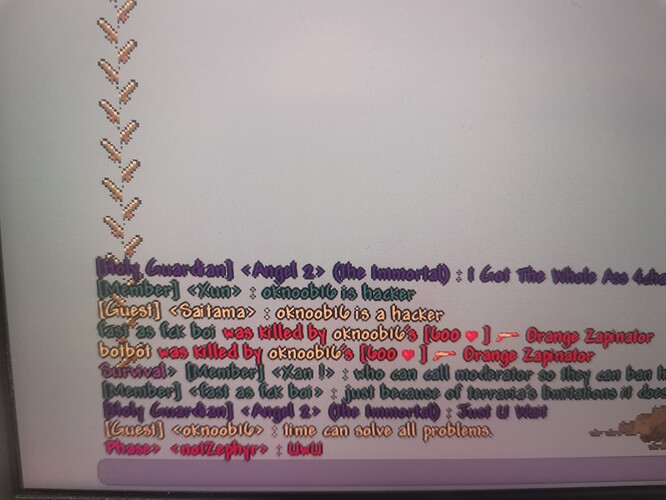 [Holy Guardian] <Angel 2> (The Immortal) : I Got The Whole Ass
[Member] <Xun> : oknoob16 is hacker
[Guest] <Saitama> : oknoob16 is a hacker
fast as fck boi was killed by oknoob16's [600 ❤] Orange Zapinator
botbot was killed by oknoob16's [600 ❤] Orange Zapinator
Survival> [Member] <Xan !> : who can call moderator so they can ban
[Member] <fast as fck boi> : just because of terraria's limitations it
[Holy Guardian] <Angel 2> (The Immortal) : Just U Wait
[Guest] <oknoob16> : time can solve all problems.
Phase> <notZephyr> : UwU